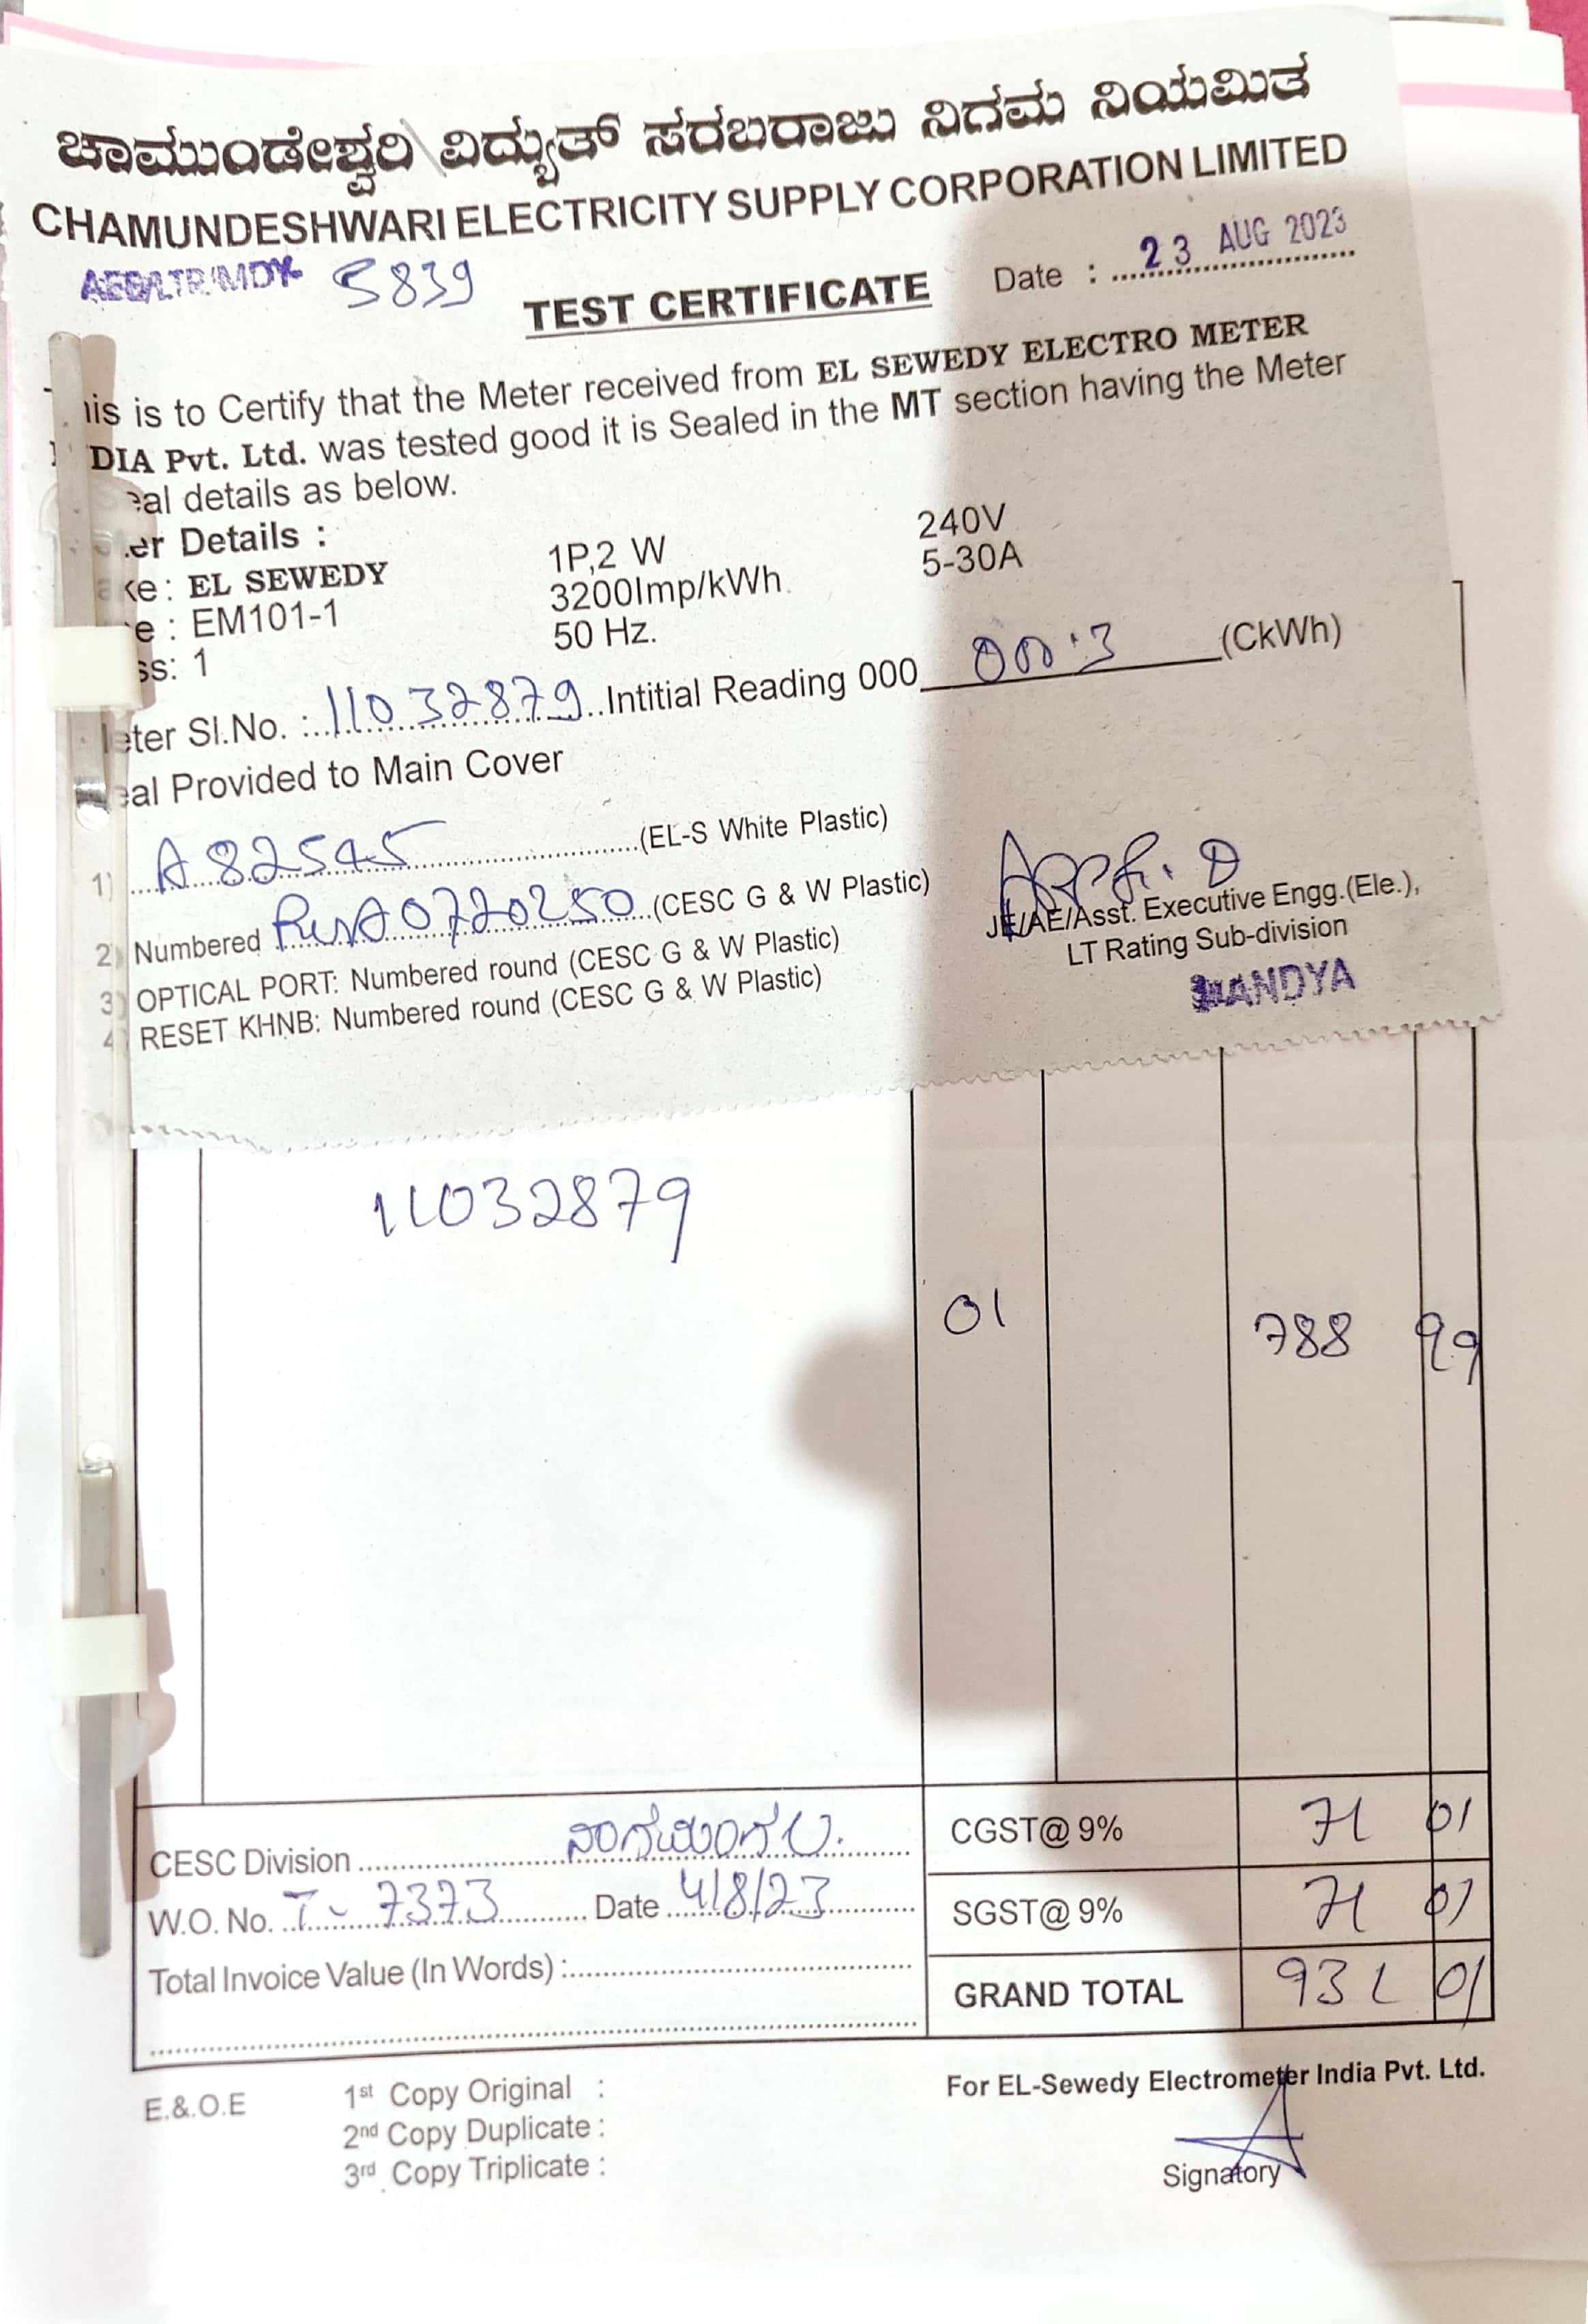 ಚಾಮುಂಡೇಶ್ವರಿ ವಿದ್ಯುತ್ ಸರಬರಾಜು ನಿಗಮ ನಿಯಮಿತ
CHAMUNDESHWARI ELECTRICITY SUPPLY CORPORATION LIMITED
5839
Date : 23 AUG 2023
TEST CERTIFICATE
is is to Certify that the Meter received from EL SEWEDY ELECTRO METER
DIA Pvt. Ltd. was tested good it is Sealed in the MT section having the Meter
eal details as below.
er Details :
1P,2 W 240V
ke: EL SEWEDY 3200Imp/kWh 5-30A
e : EM101-1 50 Hz.
ss: 1
eter Sl.No. : 11032879 Intitial Reading 000 000.3 (CkWh)
eal Provided to Main Cover
1) A82545 (EL-S White Plastic)
2) Numbered 0720250 (CESC G & W Plastic)
3) OPTICAL PORT: Numbered round (CESC G & W Plastic)
4) RESET KHNB: Numbered round (CESC G & W Plastic)
JE/AE/Asst. Executive Engg.(Ele.),
LT Rating Sub-division
MANDYA
11032879
01 788 99
CESC Division ನಾಗಮಂಗಲ. CGST@ 9% 71 01
W.O. No. T- 7373 Date 4/8/23 SGST@ 9% 71 01
Total Invoice Value (In Words) : GRAND TOTAL 931 01
E.&.O.E
1st Copy Original :
2nd Copy Duplicate :
3rd Copy Triplicate :
For EL-Sewedy Electrometer India Pvt. Ltd.
Signatory